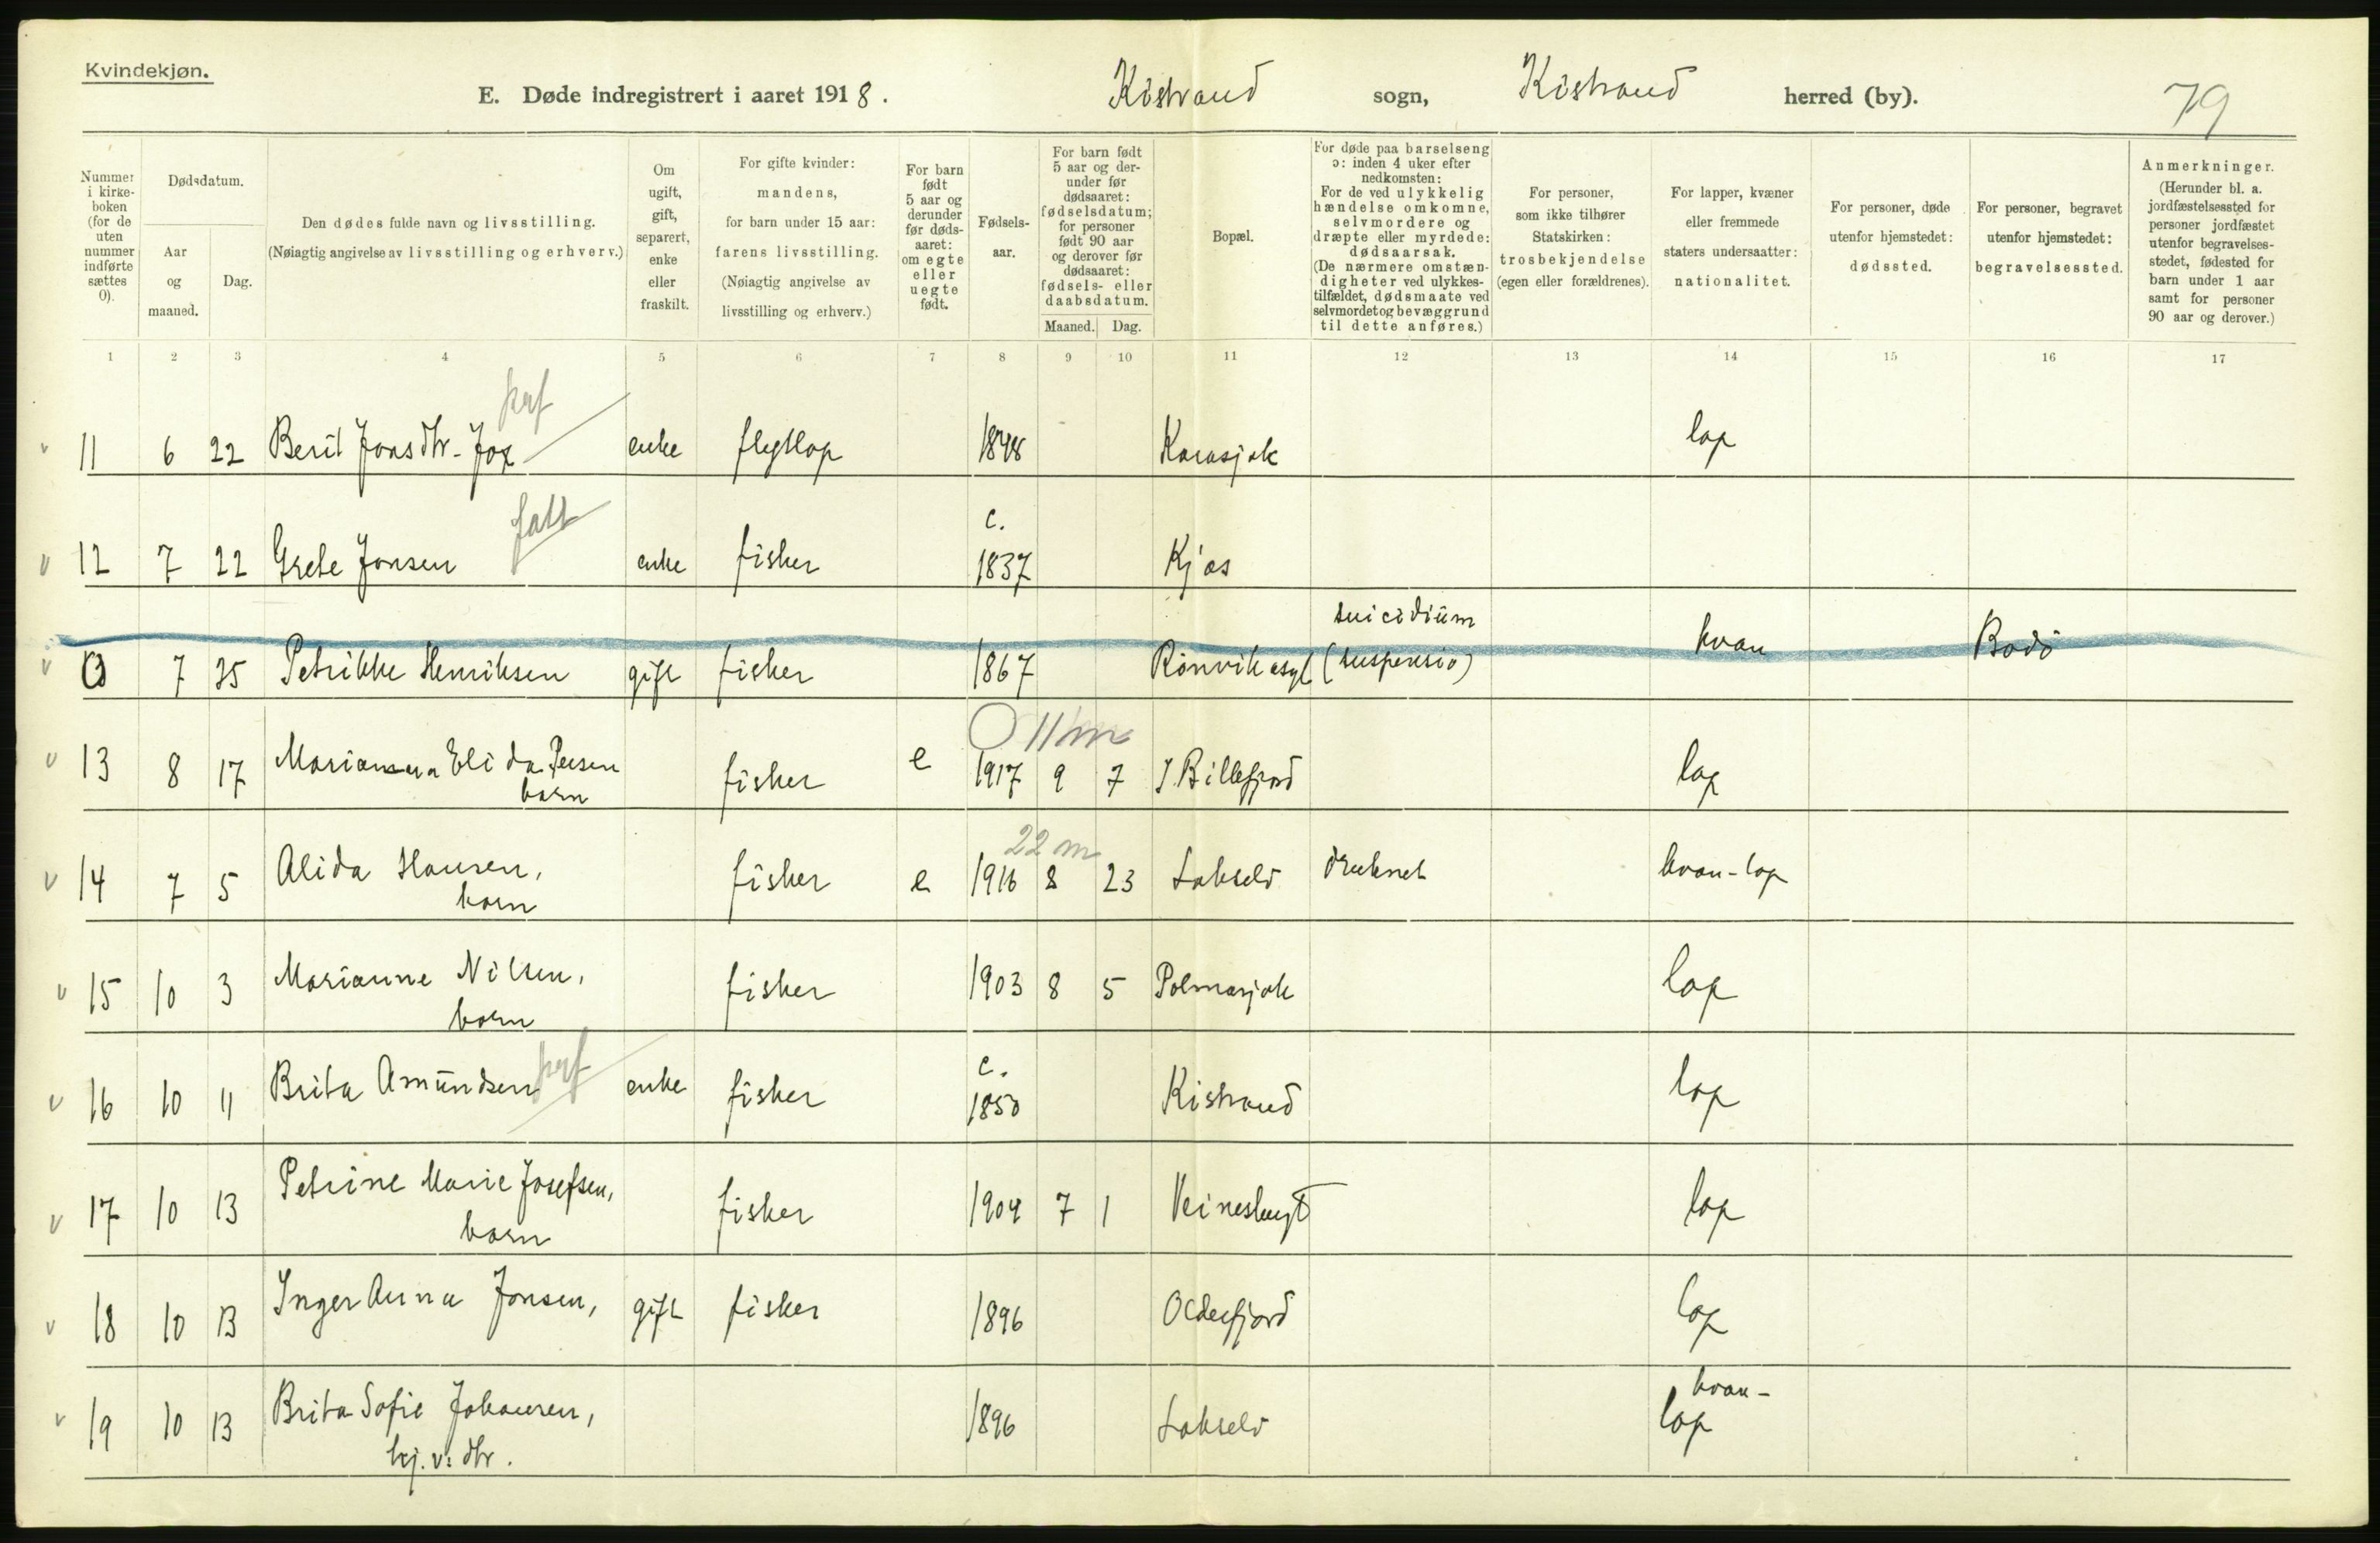 Kvindekjøn.
E. Døde indregistrert i aaret 1918. Kistrand sogn, Kistrand herred (by). 79
Nummer i kirke-boken (for de uten nummer indførte sættes 0).
Dødsdatum.
Aar og maaned.
Dag.
Den dødes fulde navn og livsstilling.
(Nøiagtig angivelse av livsstilling og erhverv.)
Om ugift, gift, separert, enke eller fraskilt.
For gifte kvinder: mandens, for barn under 15 aar: farens livsstilling. (Nøiagtig angivelse av livsstilling og erhverv.)
For barn født 5 aar og derunder før døds-aaret: om egte eller uegte født.
Fødsels-aar.
For barn født 5 aar og der-under før dødsaaret: fødselsdatum; for personer født 90 aar og derover før dødsaaret: fødsels- eller daabsdatum.
Maaned. Dag.
Bopæl.
For døde paa barselseng ɔ: inden 4 uker efter nedkomsten: For de ved ulykkelig hændelse omkomne, selvmordere og dræpte eller myrdede: dødsaarsak. (De nærmere omstæn-digheter ved ulykkes-tilfældet, dødsmaate ved selvmordet og bevæggrund til dette anføres.)
For personer, som ikke tilhører Statskirken: trosbekjendelse (egen eller forældrenes).
For lapper, kvæner eller fremmede staters undersaatter: nationalitet.
For personer, døde utenfor hjemstedet: dødssted.
For personer, begravet utenfor hjemstedet: begravelsessted.
Anmerkninger. (Herunder bl. a. jordfæstelsessted for personer jordfæstet utenfor begravelses-stedet, fødested for barn under 1 aar samt for personer 90 aar og derover.)
1 2 3 4 5 6 7 8 9 10 11 12 13 14 15 16 17
v 11 6 22 Berit Jonsdtr. Jox enke flytlap 1848 Karasjok lap
fatt
c.
v 12 7 22 Grete Jonsen enke fisker 1837 Kjæs
suicidium
v 0 7 25 Petrikke Henriksen gift fisker 1867 Rönvik asyl (suspensio) kvæn Bodö
0 11 m
v 13 8 17 Marianna Elida Persen fisker e 1917 9 7 I. Billefjord lap
barn
22 m
v 14 7 5 Alida Hansen, fisker e 1916 8 23 Lakselv druknet kvæn-lap
barn
v 15 10 3 Marianne Nilsen, fisker 1903 8 5 Polmasjok lap
barn
c.
v 16 10 11 Brita Amundsen enke fisker 1850 Kistrand lap
v 17 10 13 Petrine Marie Josefsen, fisker 1904 7 1 Veinesbugt lap
barn
v 18 10 13 Inger Anna Jonsen, gift fisker 1896 Olderfjord lap
kvæn-
v 19 10 13 Brita Sofie Johansen, 1896 Lakselv lap
hj.v. dtr.